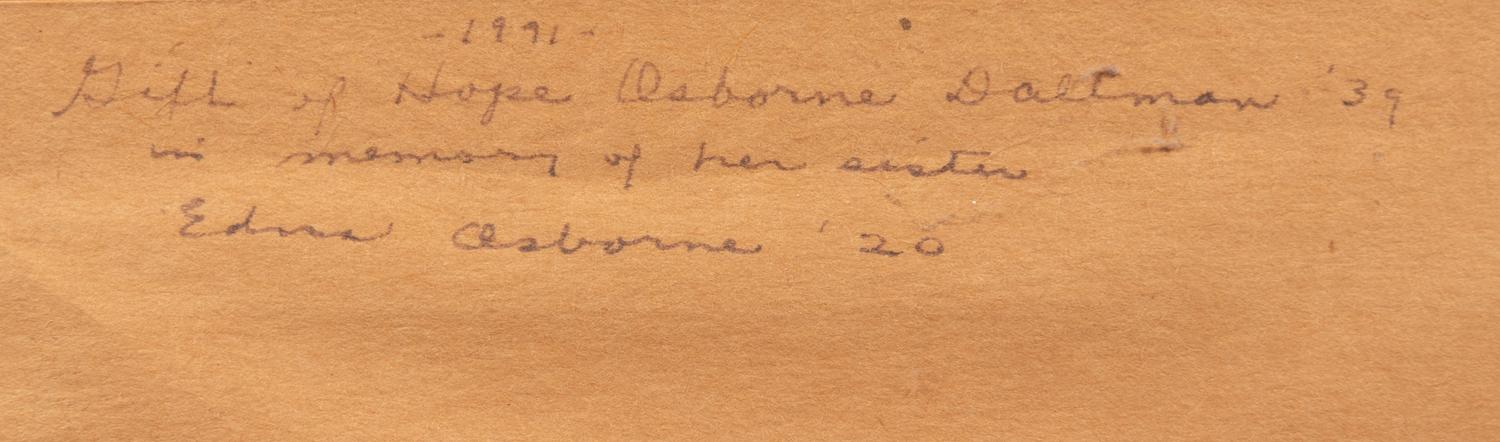 -1991-
Gift of Hope Osborne Daltman '39
in memory of her sister
Edna Osborne '20